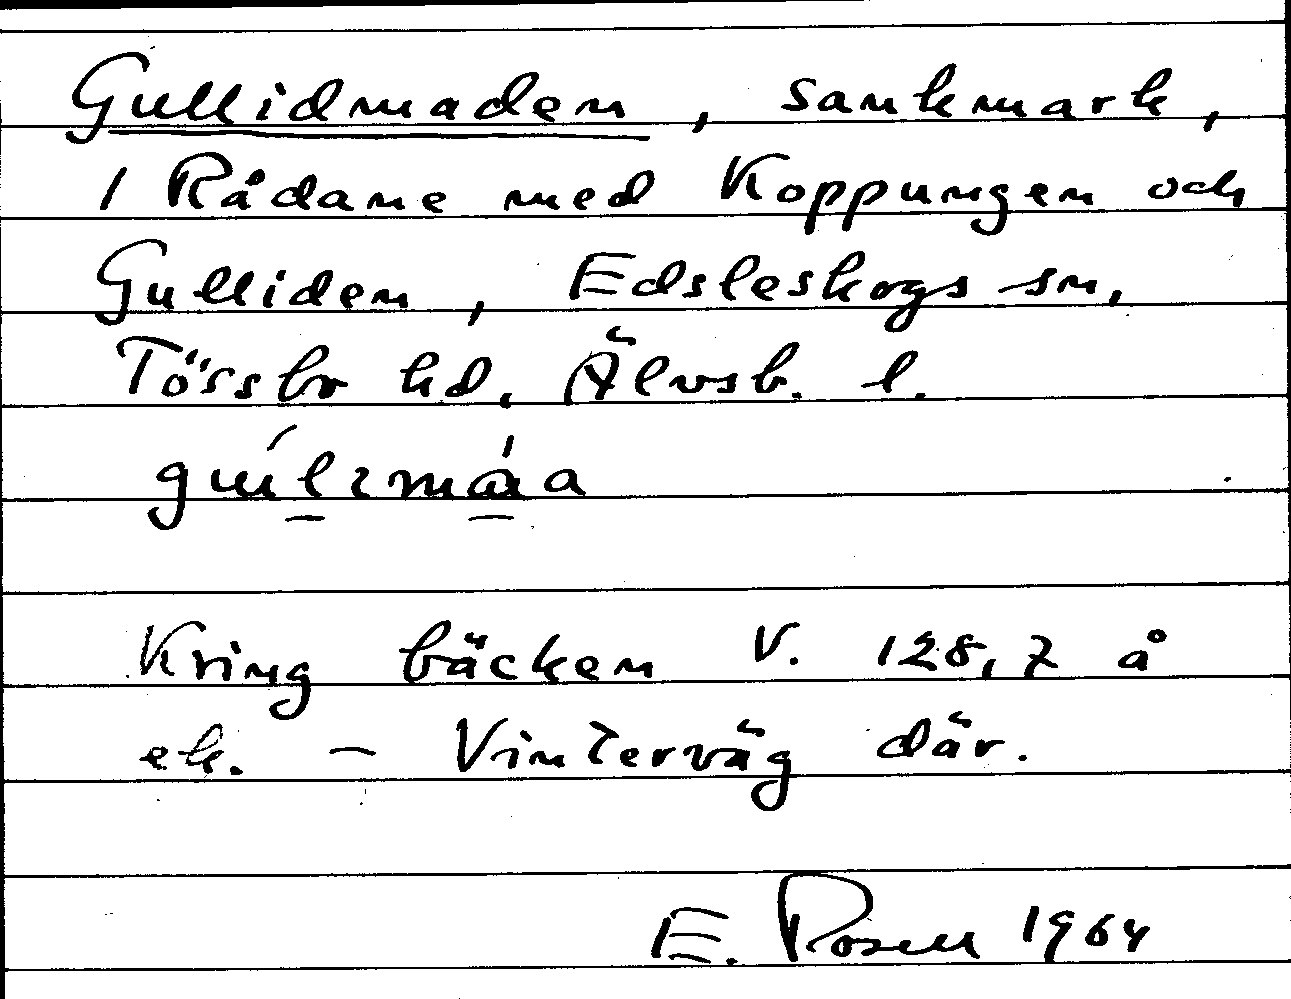 Gullidmaden, sankmark,
1 Rådane med Koppungen och
Gulliden, Edsleskogs sn,
Tössbo hd, Älvsb. l.
Kring bäcken V. 128,7 å
ek. – Vinterväg där.
E. Rosell 1964